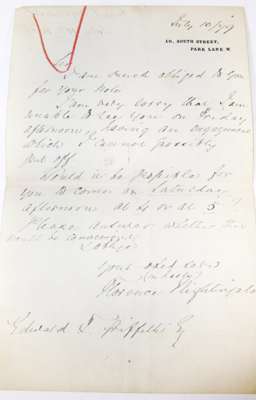 July 10/79
10, SOUTH STREET,
PARK LANE. W.
Sir
I am much obliged to you
for your Note.
I am very sorry that I am
unable to see you on Friday
afternoon, having an engagement
which I cannot possibly
put off.
Would it be possible for
you to come on Saturday
afternoon at 4 or at 5?
Please answer whether this
would be convenient
&
your
Florence Nightingale
Edward Griffiths Esq